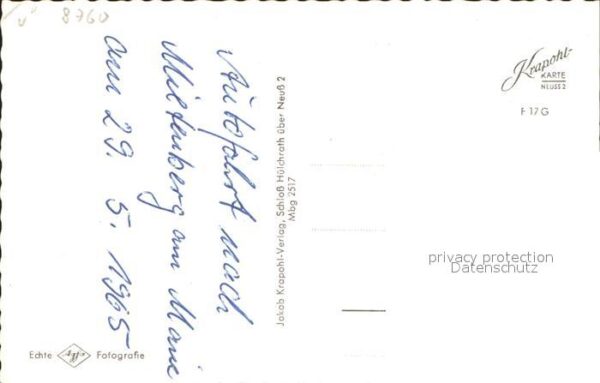 8760
Autofahrt nach
Miltenberg am Main
am 29. 5. 1965
Jakob Krapohl-Verlag, Schloß Hülchrath über Neuß 2
Mbg 2517
Krapohl-
KARTE
NEUSS 2
F 17 G
privacy protection
Datenschutz
Echte Agfa Fotografie